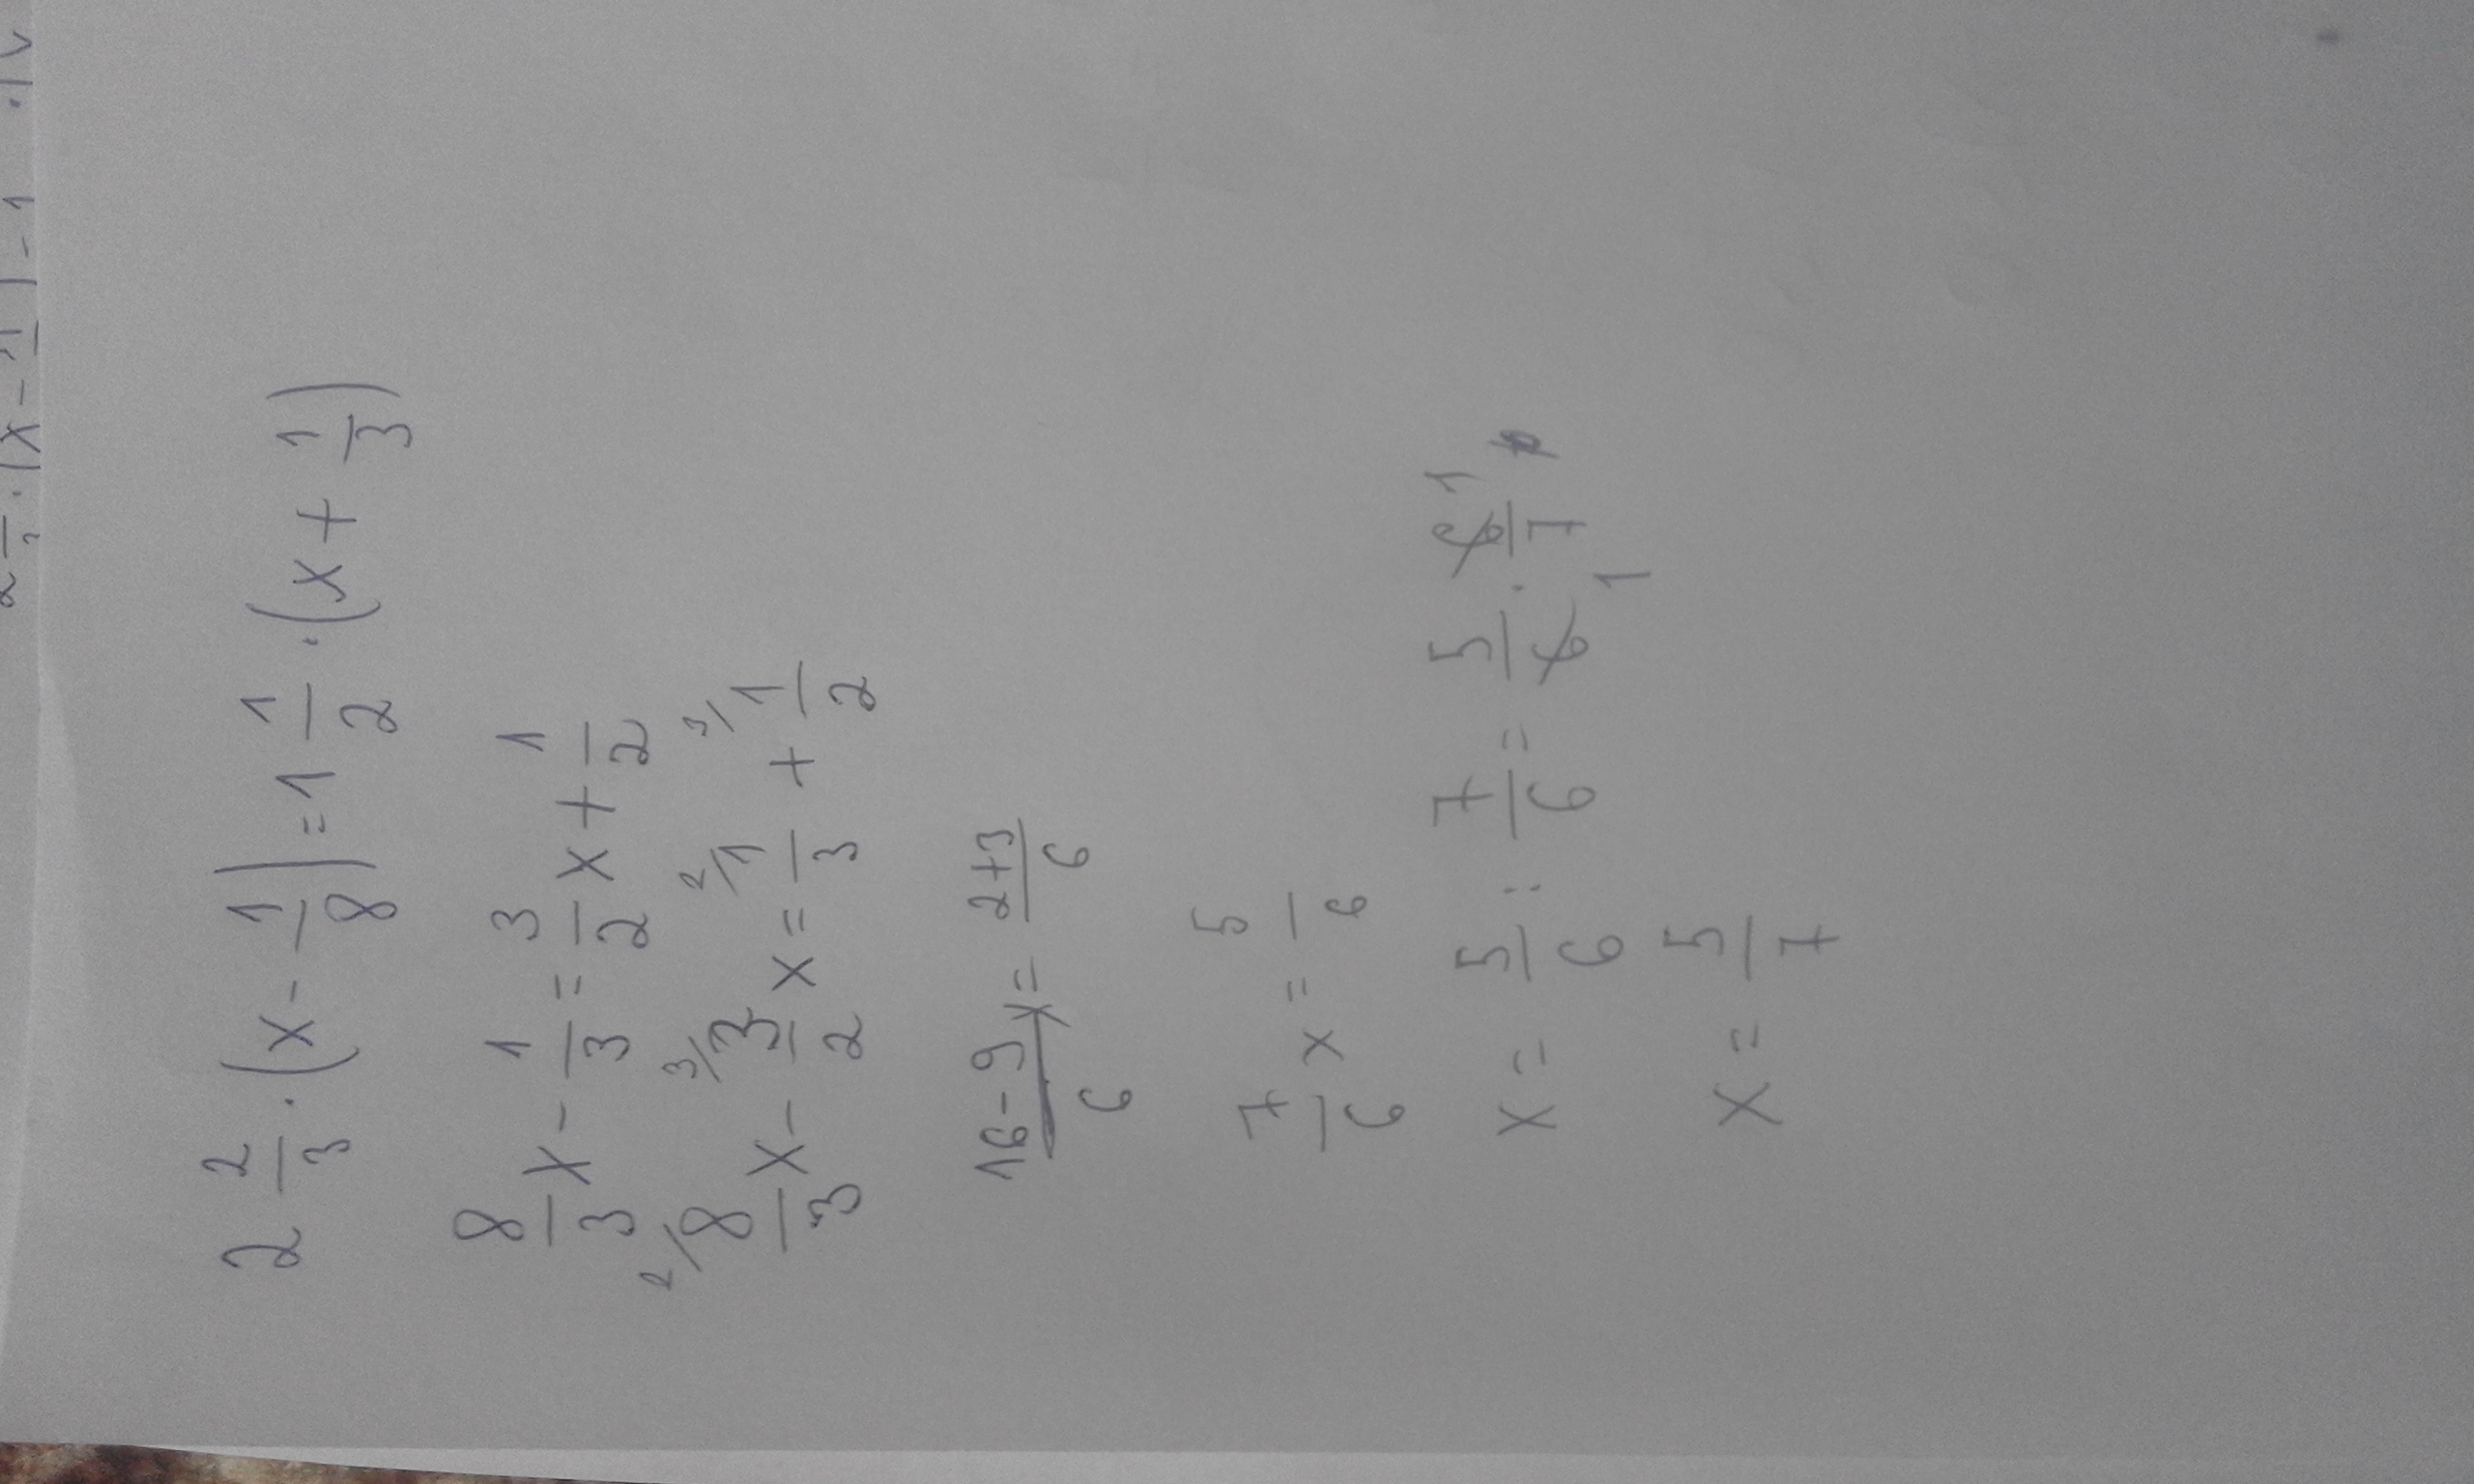 2 2/3 · (x - 1/8) = 1 1/2 · (x + 1/3)
8/3 x - 1/3 = 3/2 x + 1/2
2/ 8/3 x - 3/ 3/2 x = 2/ 1/3 + 3/ 1/2
16-9/6 x = 2+3/6
7/6 x = 5/6
x = 5/6 : 7/6 = 5/6 1 · 6/7 1
x = 5/7